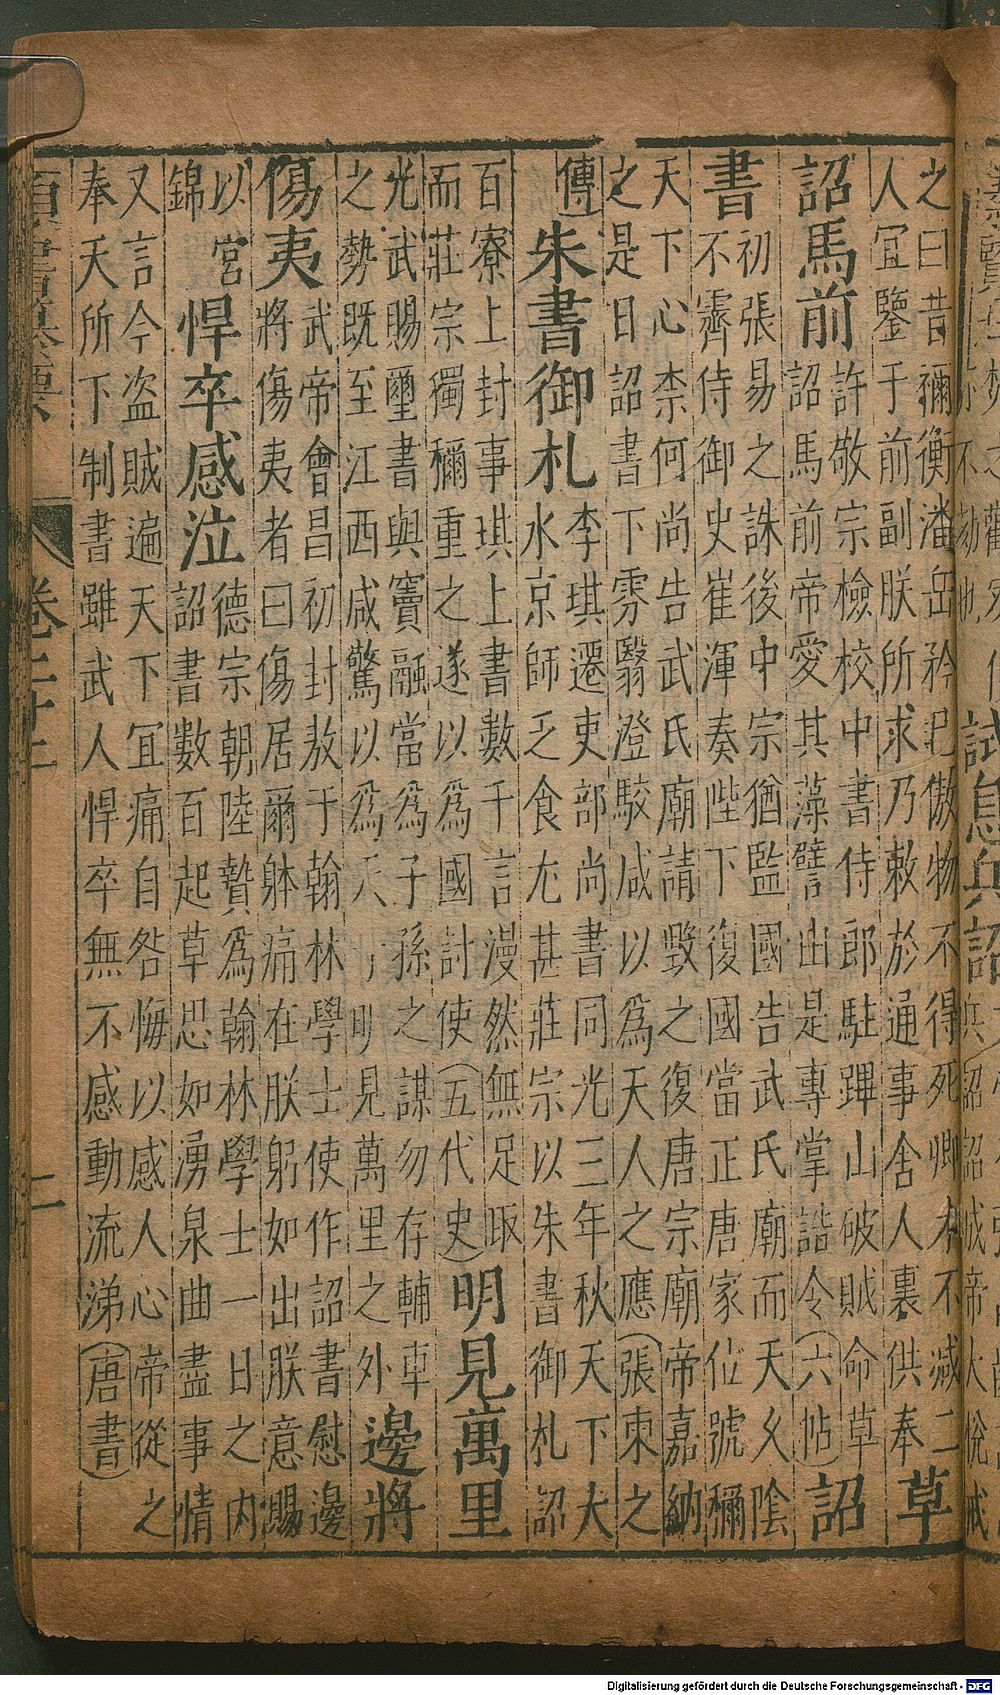 之曰昔禰衡潘岳矜己傲物不得死卿才不減二
人宜鑒于前副朕所求乃敕於通事舍人裏供奉
草
詔馬前
許敬宗檢校中書侍郎駐蹕山破賊命草
詔馬前帝愛其藻警由是專掌誥令(六帖
詔
書
初張易之誅後中宗猶監國告武氏廟而天久陰
不霽侍御史崔渾奏陛下復國當正唐家位號稱
天下心柰何尚告武氏廟請毀之復唐宗廟帝嘉納
之是日詔書下雰翳澄駮咸以為天人之應(張柬之
傳)
朱書御札
李琪遷吏部尚書同光三年秋天下大
水京師乏食尤甚莊宗以朱書御札詔
百寮上封事琪上書數千言漫然無足取
而莊宗獨稱重之遂以為國計使(五代史)
明見萬里
光武賜璽書與竇融當為子孫之謀勿存輔車
之勢既至江西咸驚以為天子明見萬里之外
邊將
傷夷
武帝會昌初封敖于翰林學士使作詔書慰邊
將傷夷者曰傷居爾躰痛在朕躬如出朕意賜
以宮
錦
悍卒感泣
德宗朝陸贄為翰林學士一日之內
詔書數百起草思如湧泉曲盡事情
又言今盗賊遍天下宜痛自咎悔以感人心帝從之
奉天所下制書雖武人悍卒無不感動流涕(唐書)
卷二十二
二
試息兵詔
Digitalisierung gefördert durch die Deutsche Forschungsgemeinschaft - DFG